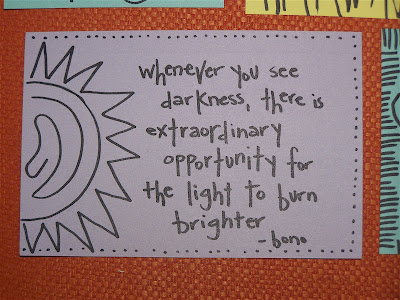 whenever you see
darkness, there is
extraordinary
opportunity for
the light to burn
brighter
-bono